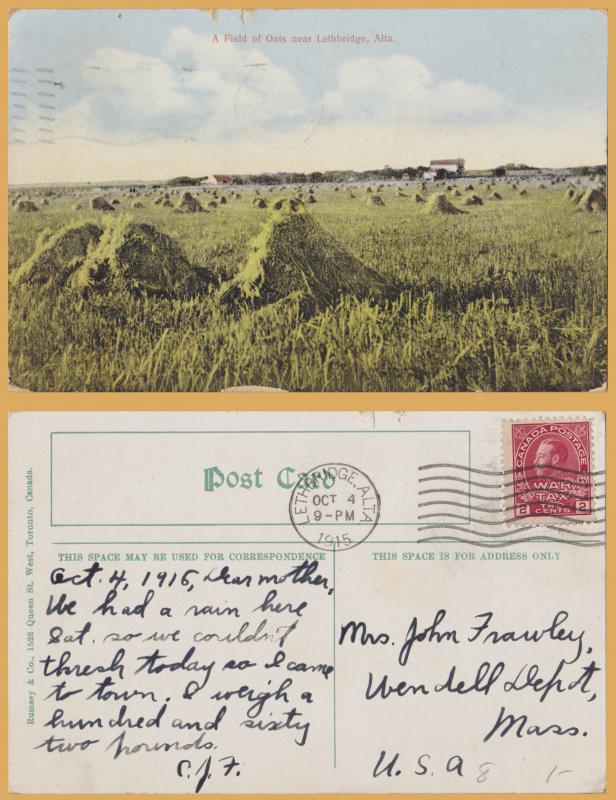 A Field of Oats near Lethbridge, Alta.
Post Card
LETHBRIDGE, ALTA.
OCT 4
9-PM
1915
CANADA POSTAGE
WAR
TAX
2 TWO 2
CENTS
Rumsey & Co., 1528 Queen St. West, Toronto, Canada.
THIS SPACE MAY BE USED FOR CORRESPONDENCE
THIS SPACE IS FOR ADDRESS ONLY
Oct. 4, 1915, Dear mother,
We had a rain here
Sat. so we couldn't
thresh today so I came
to town. I weigh a
hundred and sixty
two pounds.
C.J.F.
Mrs. John Frawley,
Wendell Depot,
Mass.
U.S.A
8 1-